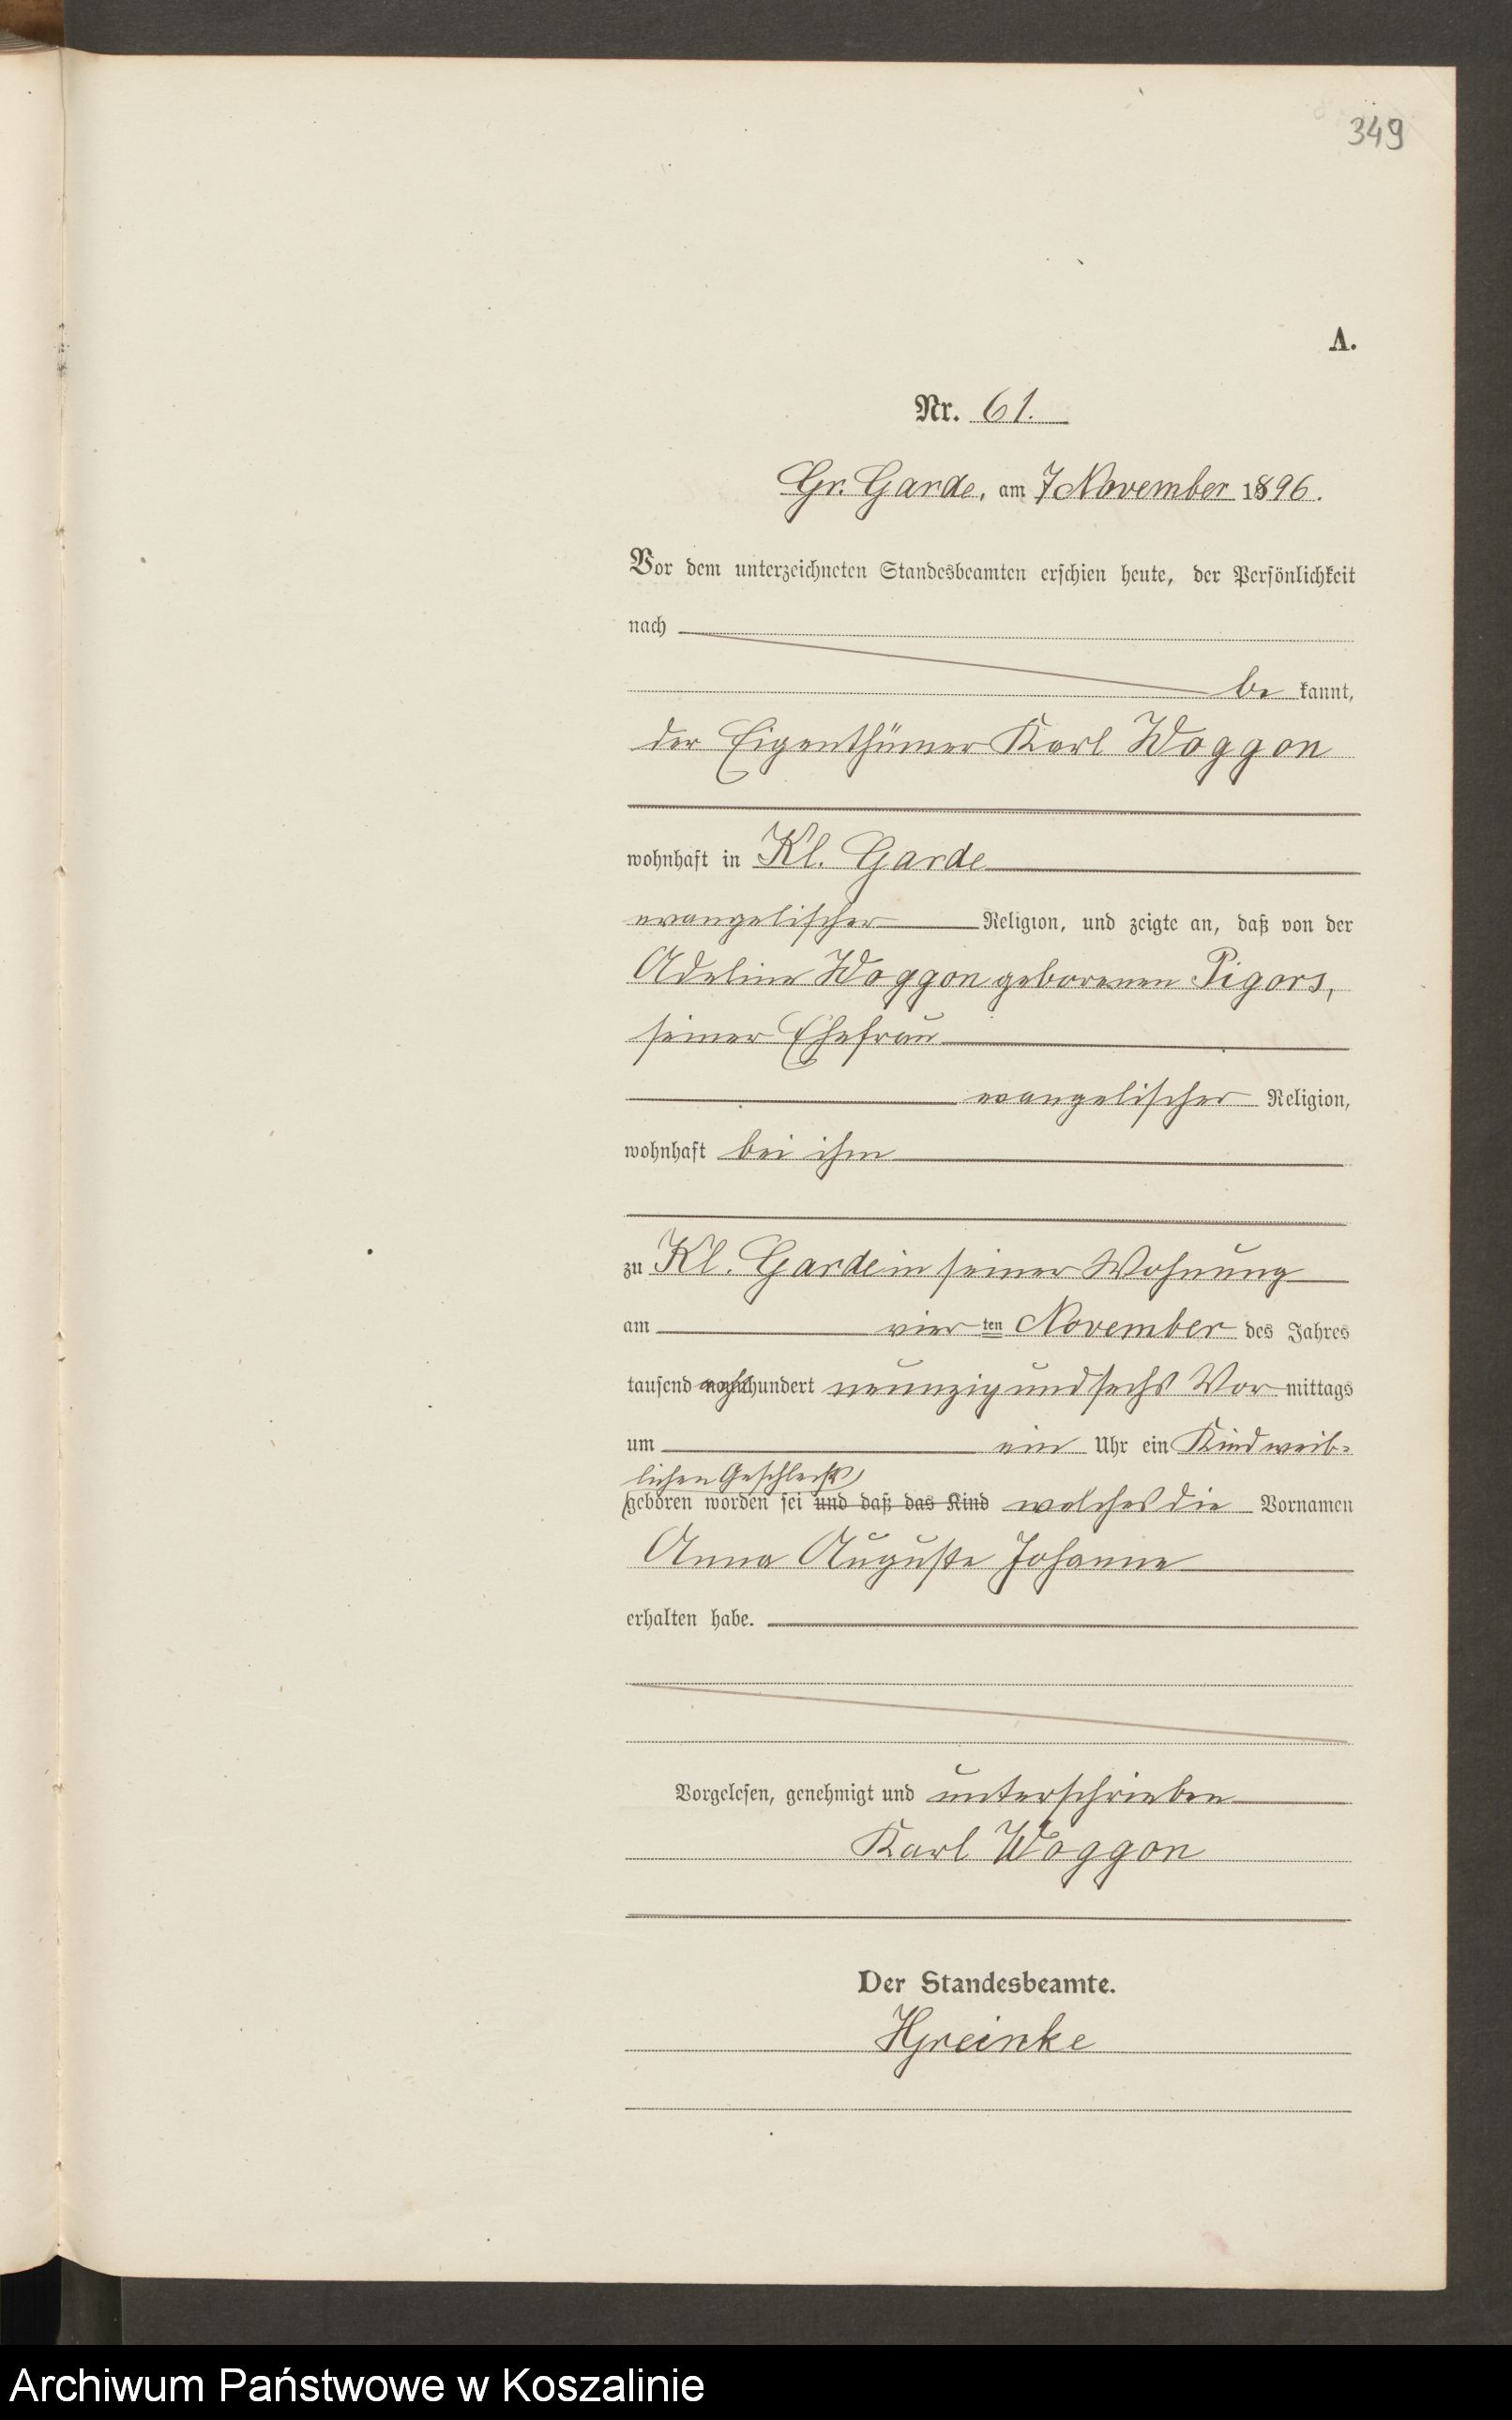 349
A.
Nr. 61.
Gr. Garde, am 7 November 1896.
Vor dem unterzeichneten Standesbeamten erschien heute, der Persönlichkeit
nach
be kannt,
der Eigenthümer Karl Woggon
wohnhaft in Kl. Garde
evangelischer Religion, und zeigte an, daß von der
Adeline Woggon geborenen Pigors,
seiner Ehefrau
evangelischer Religion,
wohnhaft bei ihm
zu Kl. Garde in seiner Wohnung
am vier ten November des Jahres
tausend achthundert neunzig und sechs Vor mittags
um ein Uhr ein Kind weib-
lichen Geschlechts
geboren worden sei und daß das Kind welches die Vornamen
Anna Auguste Johanne
erhalten habe.
Vorgelesen, genehmigt und unterschrieben
Karl Woggon
Der Standesbeamte.
Archiwum Państwowe w Koszalinie